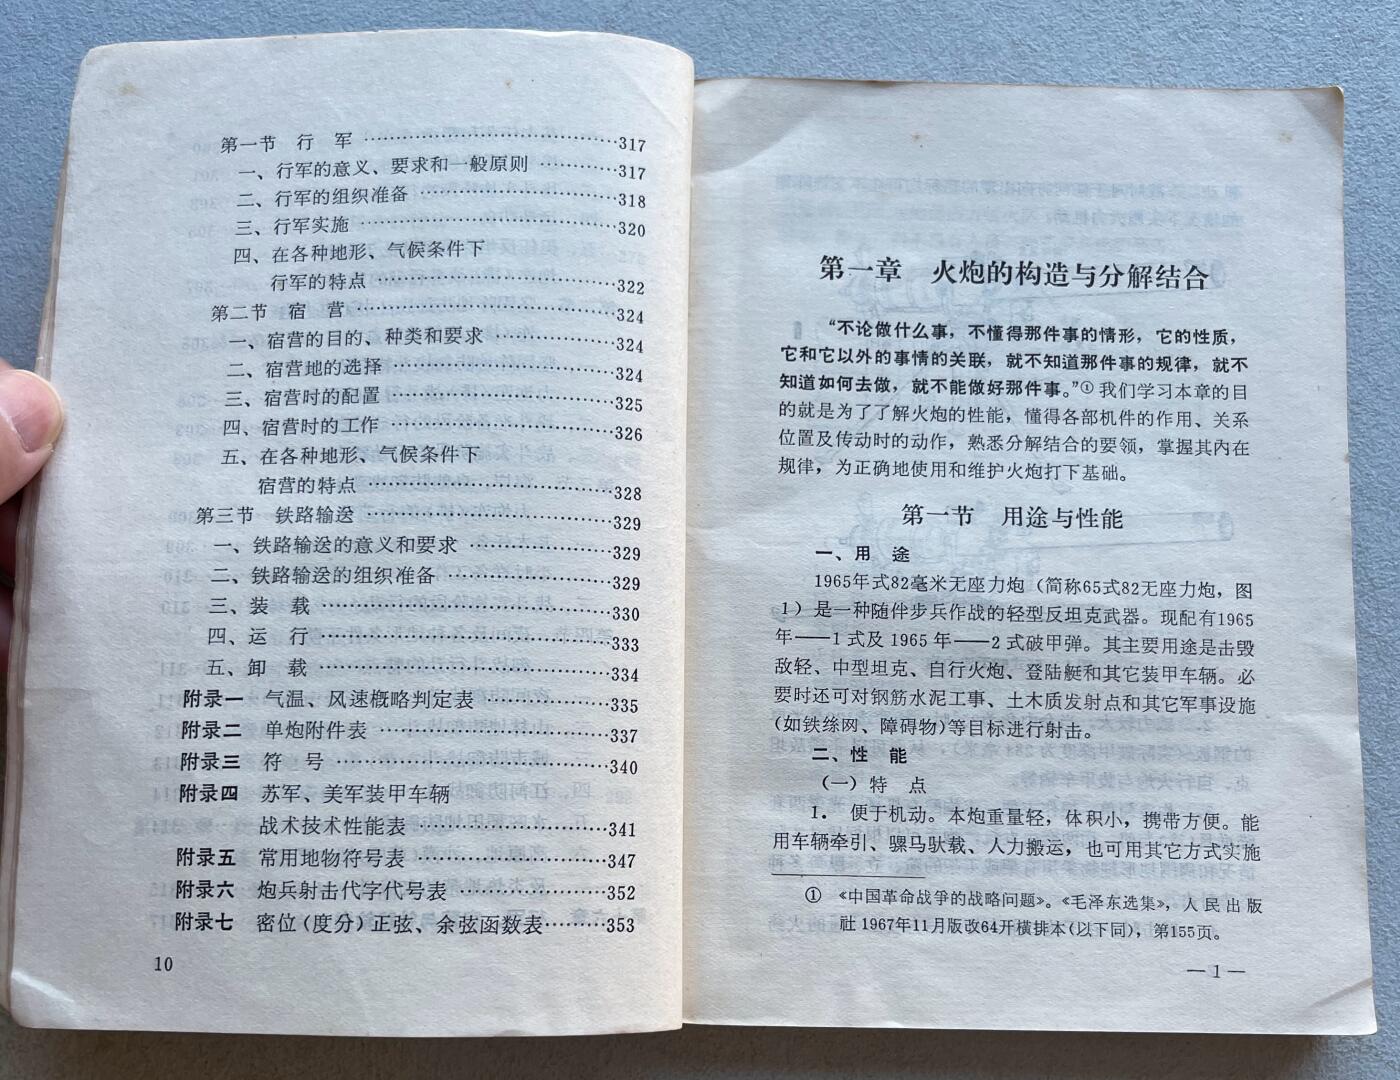 第一节 行 军 ……………………………317
一、行军的意义、要求和一般原则 …………317
二、行军的组织准备 ………………………318
三、行军实施 ………………………………320
四、在各种地形、气候条件下
行军的特点 ……………………………322
第二节 宿 营 ……………………………324
一、宿营的目的、种类和要求 ………………324
二、宿营地的选择 …………………………324
三、宿营时的配置 …………………………325
四、宿营时的工作 …………………………326
五、在各种地形、气候条件下
宿营的特点 ……………………………328
第三节 铁路输送 …………………………329
一、铁路输送的意义和要求 ………………329
二、铁路输送的组织准备 …………………329
三、装 载 …………………………………330
四、运 行 …………………………………333
五、卸 载 …………………………………334
附录一 气温、风速概略判定表 ……………335
附录二 单炮附件表 ………………………337
附录三 符 号 ……………………………340
附录四 苏军、美军装甲车辆
战术技术性能表 ………………………341
附录五 常用地物符号表 …………………347
附录六 炮兵射击代字代号表 ……………352
附录七 密位(度分)正弦、余弦函数表………353
10
第一章 火炮的构造与分解结合
“不论做什么事，不懂得那件事的情形，它的性质，
它和它以外的事情的关联，就不知道那件事的规律，就不
知道如何去做，就不能做好那件事。”①我们学习本章的目
的就是为了了解火炮的性能，懂得各部机件的作用、关系
位置及传动时的动作，熟悉分解结合的要领，掌握其内在
规律，为正确地使用和维护火炮打下基础。
第一节 用途与性能
一、用 途
1965年式82毫米无座力炮（简称65式82无座力炮，图
1）是一种随伴步兵作战的轻型反坦克武器。现配有1965
年——1式及1965年——2式破甲弹。其主要用途是击毁
敌轻、中型坦克、自行火炮、登陆艇和其它装甲车辆。必
要时还可对钢筋水泥工事、土木质发射点和其它军事设施
(如铁丝网、障碍物)等目标进行射击。
二、性 能
(一) 特 点
1. 便于机动。本炮重量轻，体积小，携带方便。能
用车辆牵引、骡马驮载、人力搬运，也可用其它方式实施
① 《中国革命战争的战略问题》。《毛泽东选集》，人民出版
社1967年11月版改64开横排本(以下同)，第155页。
— 1 —